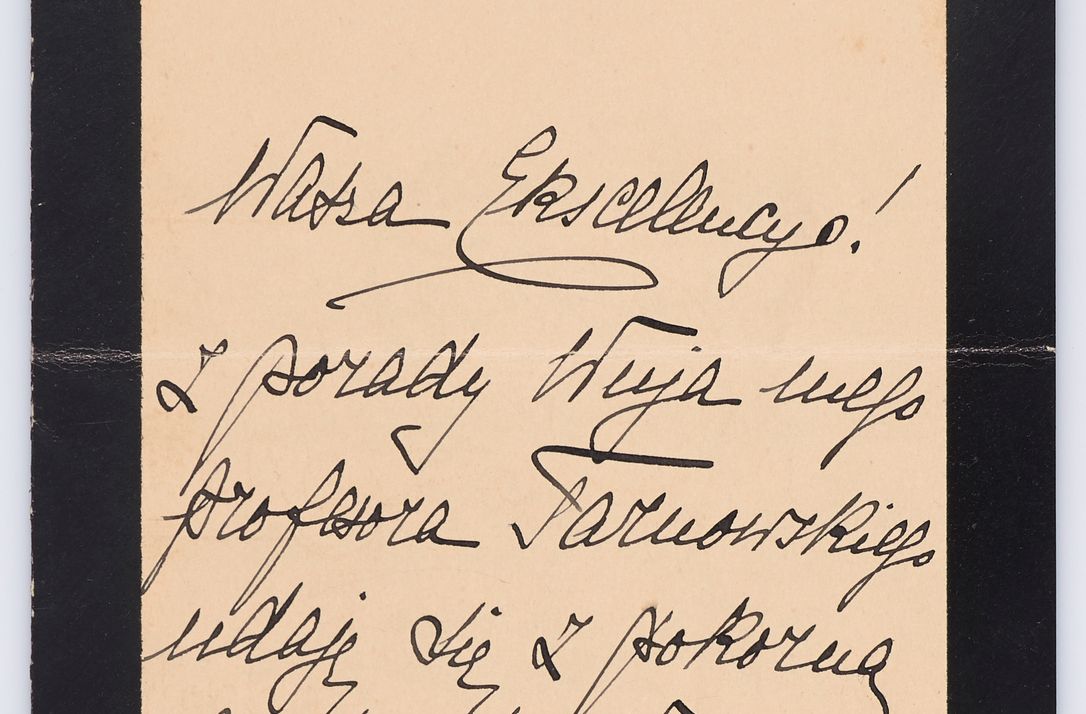 Wasza Ekscellencyo!
Z porady Wuja mego
profesora Tarnowskiego
udaję się z pokorną